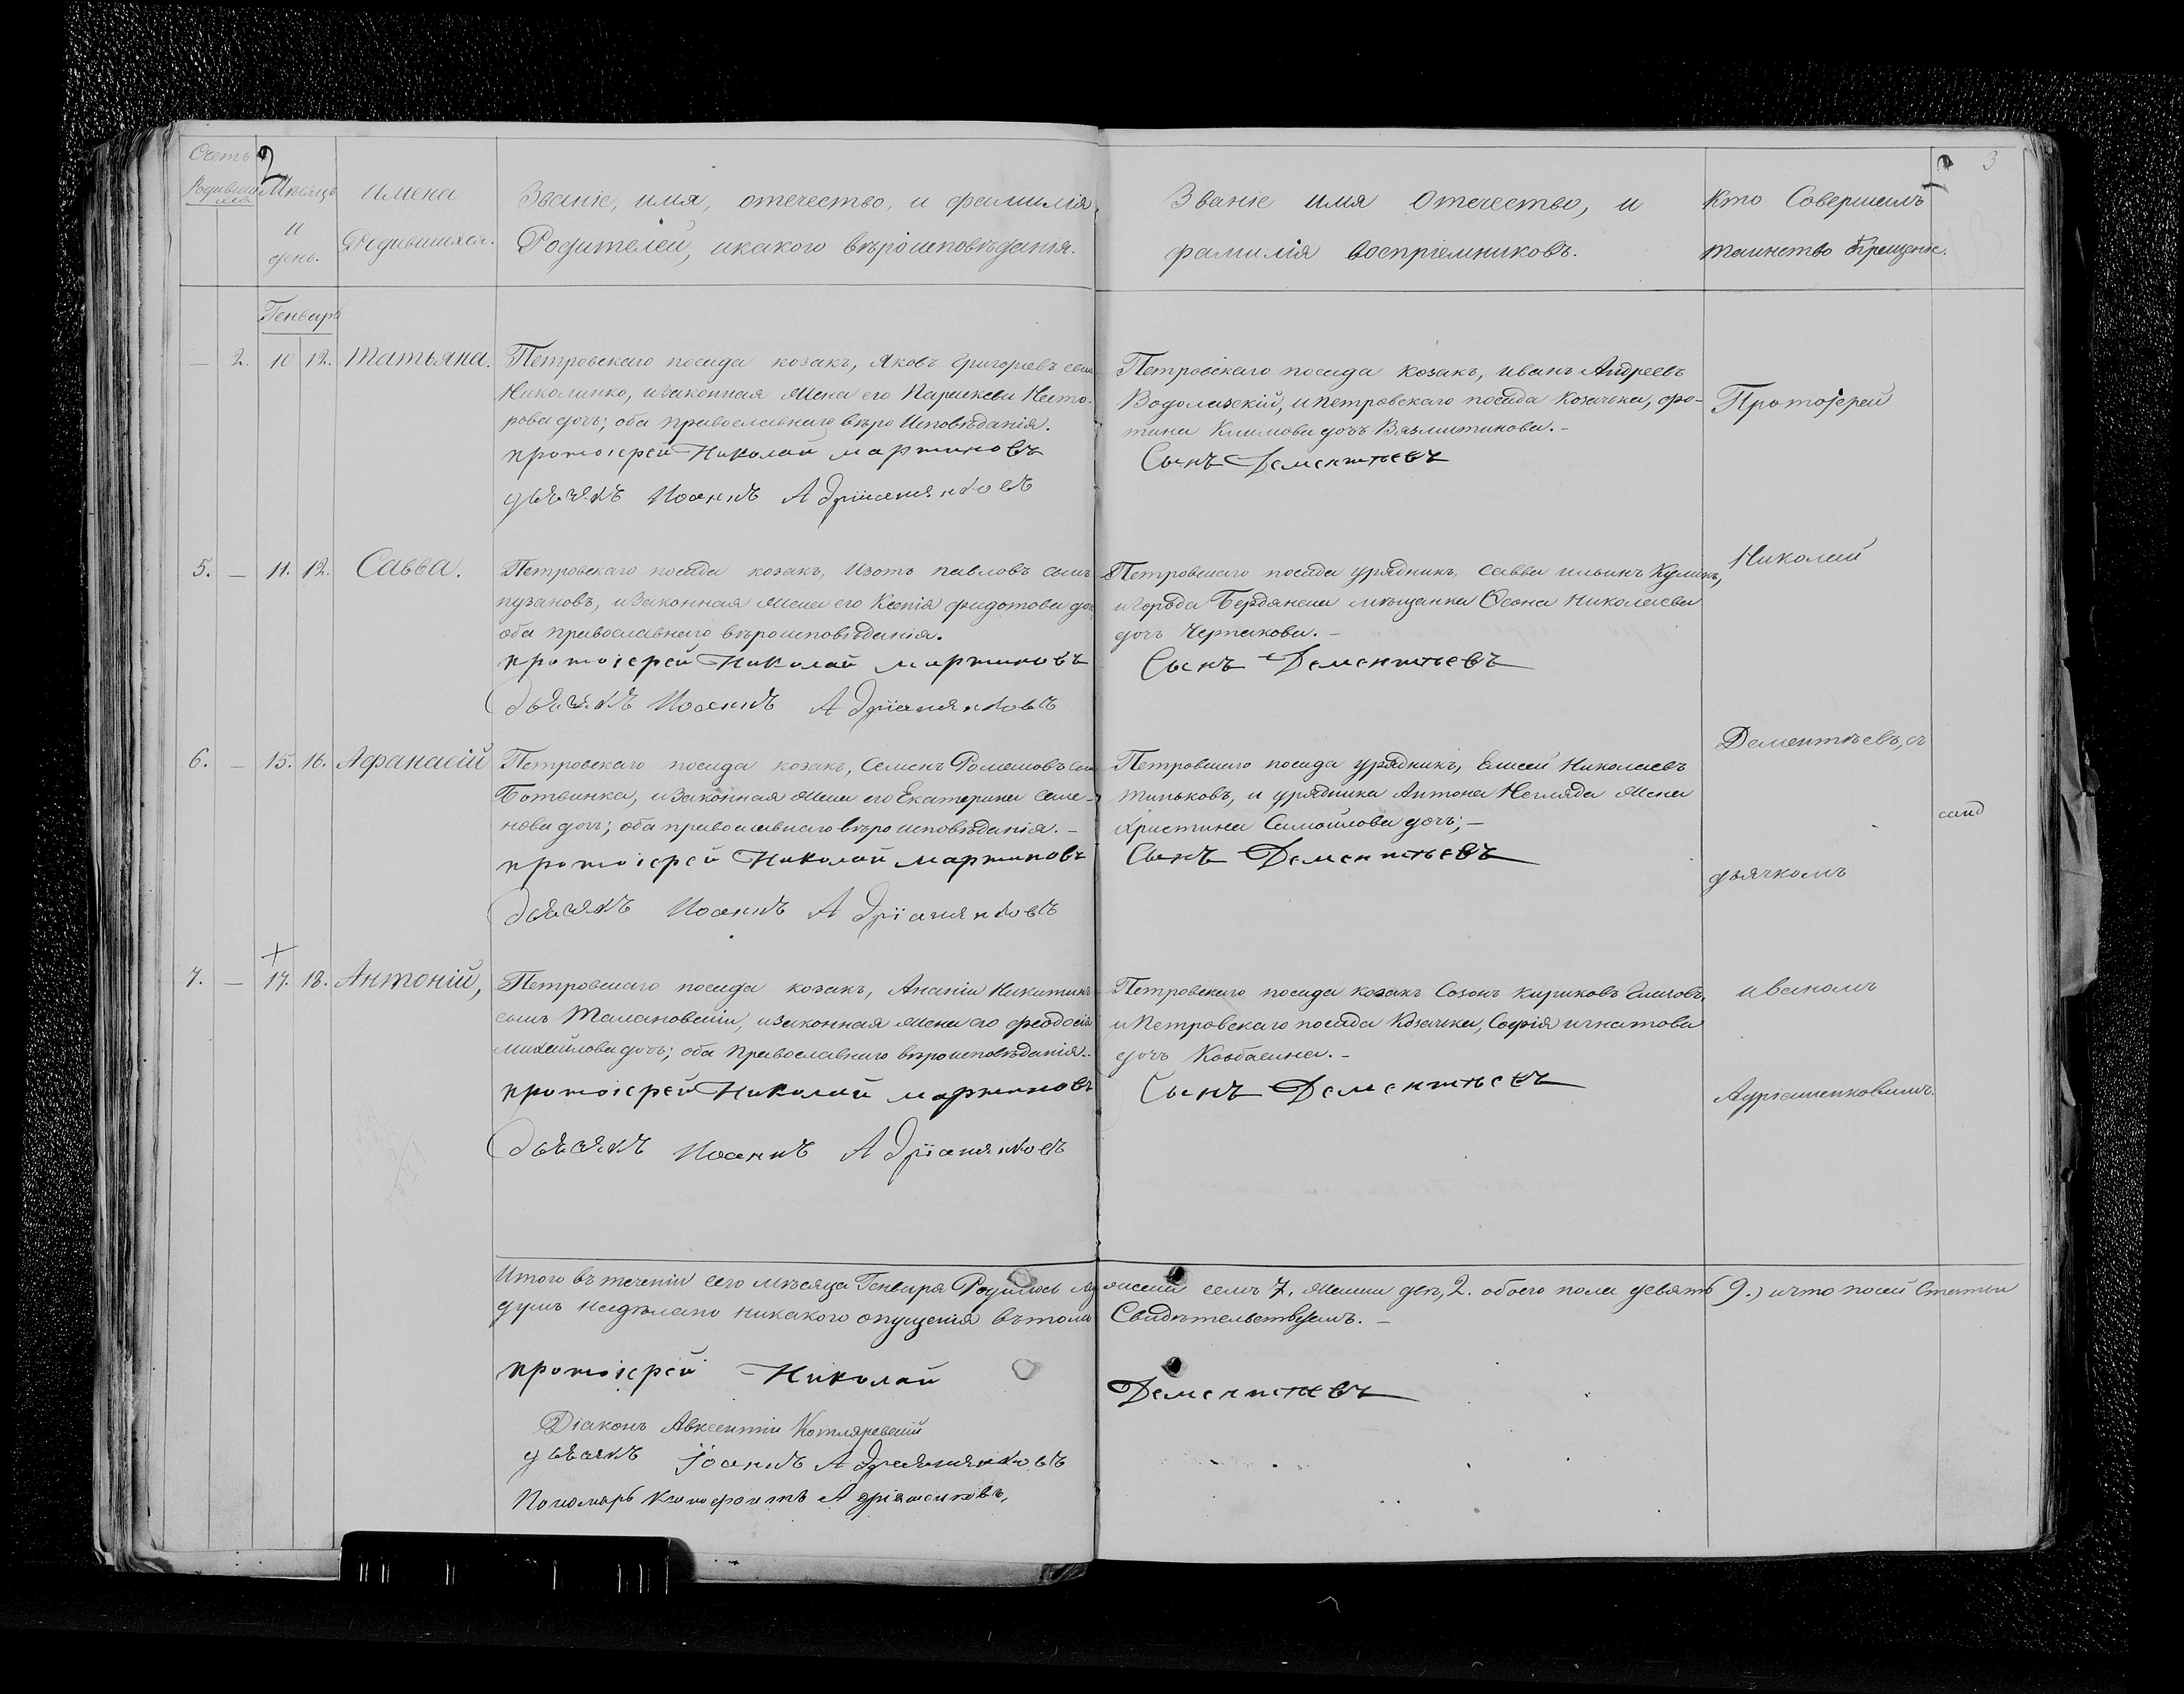 Счетъ
Родивших
ся
2
Мѣсяцъ
и
день.
Имена
Родившихся.
Званіе, имя, отечество, и фамилія
Родителей, икакого вѣроисповѣданія.
Званіе имя Отечество, и
фамилія воспріемниковъ.
Кто Совершалъ
таинство Крещеніе.
3
Генваря
— 2. 10 12. Татьяна.
Петровскаго посада козакъ, Яковъ Григорьевъ сынъ
Николенко, изаконная жена его Параскева Несто-
рова дочь; оба православнаго вѣро Исповѣданія.
протоіерей Николай мартиновъ
дьячекъ Иоаннъ Адріяшенковъ
Петровскаго посада козакъ, иванъ Андреевъ
Водолазскій, ипетровскаго посада Козачька, фо-
тина Климова дочь Вязмитинова. –
Сынъ Дементьевъ
Протоіерей
5. — 11. 12. Савва.
Петровскаго посада козакъ, Изотъ павловъ сынъ
пузановъ, изаконная жена его Ксенія федотова доч
оба православнаго вѣроисповѣданія.
протоіерей Николай мартиновъ
Дьячекъ Иоаннъ Адріяшенковъ
Петровскаго посада урядникъ, савва ильинъ Куликъ,
игорода Бердянска мѣщанка Николаева
дочь Черпакова. –
Сынъ Дементьевъ
Николай
6. — 15. 16. Афанасій
Петровскаго посада козакъ, Семенъ Романовъ сын
Ботвинка, изаконная жена его Екатерина Семе-
нова дочь; оба православнаго вѣроисповѣданія. –
протоіерей Николай мартиновъ
Дьячекъ Иоаннъ Адріяшенковъ
Петровскаго посада урядникъ, Елисей Николаевъ
тиньковъ, и урядника Антона Негляда жена
христина Самойлова дочь; –
Сынъ Дементьевъ
Дементьевъ, съ
дьячкомъ
7. — 17. 18. Антоній,
Петровскаго посада козакъ, Ананія Никитинъ
сынъ Талановскій, изаконная жена его феодосія
михайлова дочь; оба Православнаго вѣроисповѣданія. –
протоіерей Николай мартиновъ
Дьячекъ Иоаннъ Адріяшенковъ
Петровскаго посада козакъ Созонъ кириковъ
и Петровскаго посада Козачька, Софія игнатова
дочь Ковбасина. –
Сынъ Дементьевъ
иваномъ
Адріяшенковымъ.
Итого въ теченіи сего мѣсяца Генваря Родилось муженск семъ 7. женск двѣ, 2. обоего пола девять 9.) ичто посей Статьи
думъ несдѣлано никакого опущенія вътомъ Свидѣтельствуемъ. –
протоіерей Николай Дементьевъ
Діаконъ Авксентій Котляревскій
дьячекъ Іоаннъ Адріяшенковъ
Пономарь Ксенофонтъ Адріяшенковъ,